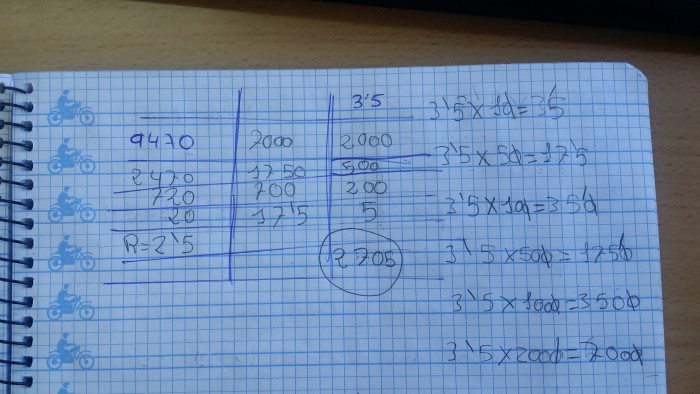 3'5
9470 7000 2000
2470 1750 500
720 700 200
20 17'5 5
R=2'5 2705
3'5 x 10=3'5
3'5 x 50=17'5
3'5 x 100=350
3'5 x 500=1750
3'5 x 1000=3500
3'5 x 2000=7000